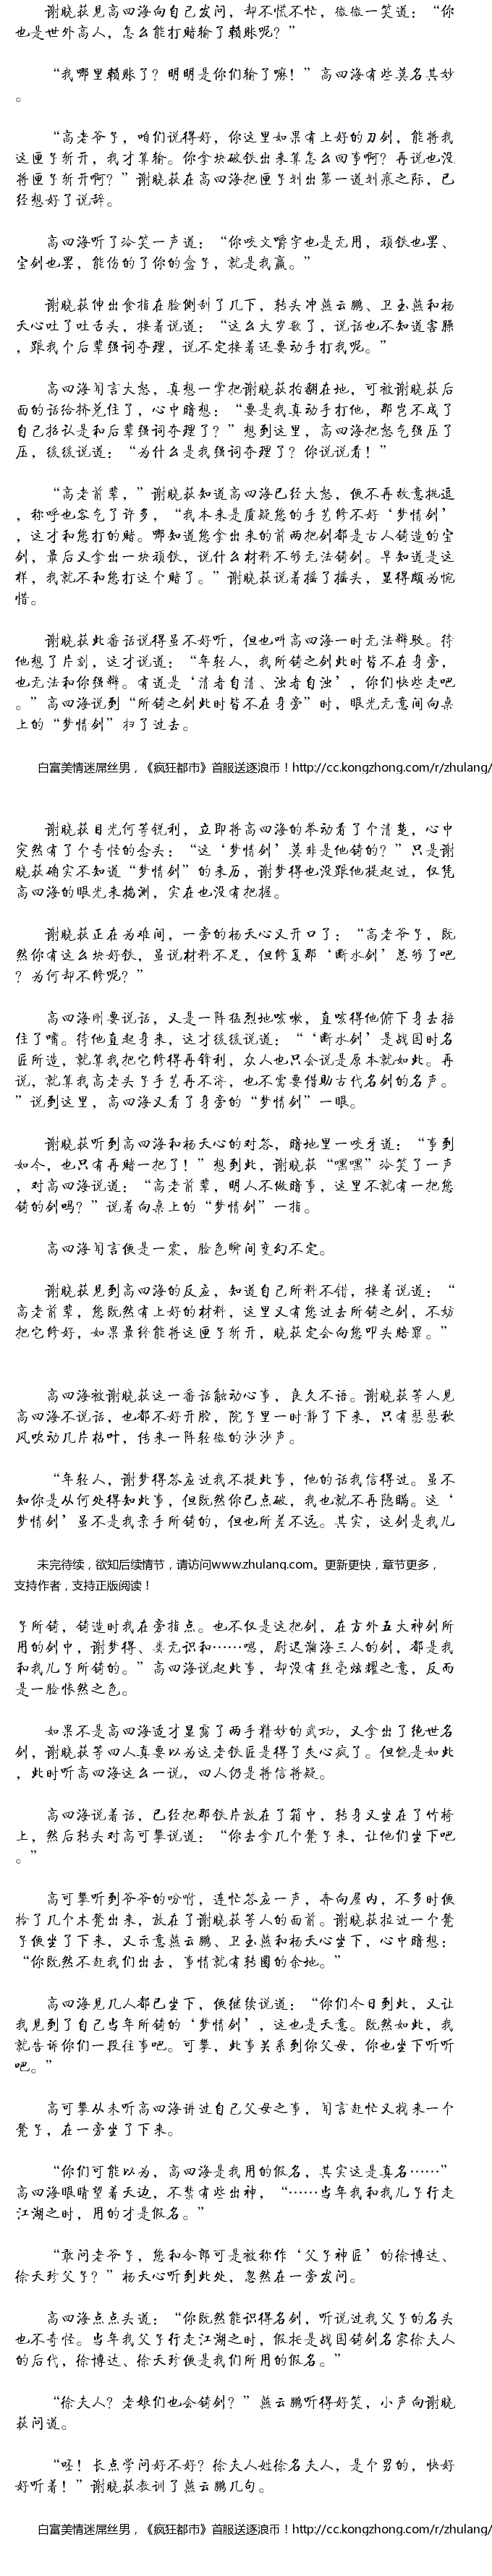 谢晓荻见高四海向自己发问，却不慌不忙，微微一笑道：“你
也是世外高人，怎么能打赌输了赖账呢？”
“我哪里赖账了？明明是你们输了嘛！”高四海有些莫名其妙
。
“高老爷子，咱们说得好，你这里如果有上好的刀剑，能将我
这匣子斩开，我才算输。你拿块破铁出来算怎么回事啊？再说也没
将匣子斩开啊？”谢晓荻在高四海把匣子划出第一道划痕之际，已
经想好了说辞。
高四海听了冷笑一声道：“你咬文嚼字也是无用，顽铁也罢、
宝剑也罢，能伤的了你的盒子，就是我赢。”
谢晓荻伸出食指在脸侧刮了几下，转头冲燕云鹏、卫玉燕和杨
天心吐了吐舌头，接着说道：“这么大岁数了，说话也不知道害臊
，跟我个后辈强词夺理，说不定接着还要动手打我呢。”
高四海闻言大怒，真想一掌把谢晓荻拍翻在地，可被谢晓荻后
面的话给挤兑住了，心中暗想：“要是我真动手打他，那岂不成了
自己招认是和后辈强词夺理了？”想到这里，高四海把怒气强压了
压，缓缓说道：“为什么是我强词夺理了？你说说看！”
“高老前辈，”谢晓荻知道高四海已经大怒，便不再故意挑逗
，称呼也客气了许多，“我本来是质疑您的手艺修不好‘梦情剑’
，这才和您打的赌。哪知道您拿出来的前两把剑都是古人铸造的宝
剑，最后又拿出一块顽铁，说什么材料不够无法铸剑。早知道是这
样，我就不和您打这个赌了。”谢晓荻说着摇了摇头，显得颇为惋
惜。
谢晓荻此番话说得虽不好听，但也叫高四海一时无法辩驳。待
他想了片刻，这才说道：“年轻人，我所铸之剑此时皆不在身旁，
也无法和你强辩。有道是‘清者自清、浊者自浊’，你们快些走吧
。”高四海说到“所铸之剑此时皆不在身旁”时，眼光无意间向桌
上的“梦情剑”扫了过去。
白富美情迷屌丝男，《疯狂都市》首服送逐浪币！http://cc.kongzhong.com/r/zhulang/
谢晓荻目光何等锐利，立即将高四海的举动看了个清楚，心中
突然有了个奇怪的念头：“这‘梦情剑’莫非是他铸的？”只是谢
晓荻确实不知道“梦情剑”的来历，谢梦得也没跟他提起过，仅凭
高四海的眼光来揣测，实在也没有把握。
谢晓荻正在为难间，一旁的杨天心又开口了：“高老爷子，既
然你有这么块好铁，虽说材料不足，但修复那‘断水剑’总够了吧
？为何却不修呢？”
高四海刚要说话，又是一阵猛烈地咳嗽，直咳得他俯下身去捂
住了嘴。待他直起身来，这才缓缓说道：“‘断水剑’是战国时名
匠所造，就算我把它修得再锋利，众人也只会说是原本就如此。再
说，就算我高老头子手艺再不济，也不需要借助古代名剑的名声。
”说到这里，高四海又看了身旁的“梦情剑”一眼。
谢晓荻听到高四海和杨天心的对答，暗地里一咬牙道：“事到
如今，也只有再赌一把了！”想到此，谢晓荻“嘿嘿”冷笑了一声
，对高四海说道：“高老前辈，明人不做暗事，这里不就有一把您
铸的剑吗？”说着向桌上的“梦情剑”一指。
高四海闻言便是一震，脸色瞬间变幻不定。
谢晓荻见到高四海的反应，知道自己所料不错，接着说道：“
高老前辈，您既然有上好的材料，这里又有您过去所铸之剑，不妨
把它修好，如果最终能将这匣子斩开，晓荻定会向您叩头赔罪。”
高四海被谢晓荻这一番话触动心事，良久不语。谢晓荻等人见
高四海不说话，也都不好开腔，院子里一时静了下来，只有瑟瑟秋
风吹动几片枯叶，传来一阵轻微的沙沙声。
“年轻人，谢梦得答应过我不提此事，他的话我信得过。虽不
知你是从何处得知此事，但既然你已点破，我也就不再隐瞒。这‘
梦情剑’虽不是我亲手所铸的，但也所差不远。其实，这剑是我儿
未完待续，欲知后续情节，请访问www.zhulang.com。更新更快，章节更多，
支持作者，支持正版阅读！
子所铸，铸造时我在旁指点。也不仅是这把剑，在方外五大神剑所
用的剑中，谢梦得、娄无识和……嗯，尉迟瀚海三人的剑，都是我
和我儿子所铸的。”高四海说起此事，却没有丝毫炫耀之意，反而
是一脸怅然之色。
如果不是高四海适才显露了两手精妙的武功，又拿出了绝世名
剑，谢晓荻等四人真要以为这老铁匠是得了失心疯了。但饶是如此
，此时听高四海这么一说，四人仍是将信将疑。
高四海说着话，已经把那铁片放在了箱中，转身又坐在了竹椅
上，然后转头对高可攀说道：“你去拿几个凳子来，让他们坐下吧
。”
高可攀听到爷爷的吩咐，连忙答应一声，奔向屋内，不多时便
拎了几个木凳出来，放在了谢晓荻等人的面前。谢晓荻拉过一个凳
子便坐了下来，又示意燕云鹏、卫玉燕和杨天心坐下，心中暗想：
“你既然不赶我们出去，事情就有转圜的余地。”
高四海见几人都已坐下，便继续说道：“你们今日到此，又让
我见到了自己当年所铸的‘梦情剑’，这也是天意。既然如此，我
就告诉你们一段往事吧。可攀，此事关系到你父母，你也坐下听听
吧。”
高可攀从未听高四海讲过自己父母之事，闻言赶忙又找来一个
凳子，在一旁坐了下来。
“你们可能以为，高四海是我用的假名，其实这是真名……”
高四海眼睛望着天边，不禁有些出神，“……当年我和我儿子行走
江湖之时，用的才是假名。”
“敢问老爷子，您和令郎可是被称作‘父子神匠’的徐博达、
徐天珍父子？”杨天心听到此处，忽然在一旁发问。
高四海点点头道：“你既然能识得名剑，听说过我父子的名头
也不奇怪。当年我父子行走江湖之时，假托是战国铸剑名家徐夫人
的后代，徐博达、徐天珍便是我们所用的假名。”
“徐夫人？老娘们也会铸剑？”燕云鹏听得好笑，小声向谢晓
荻问道。
“呸！长点学问好不好？徐夫人姓徐名夫人，是个男的，快好
好听着！”谢晓荻教训了燕云鹏几句。
白富美情迷屌丝男，《疯狂都市》首服送逐浪币！http://cc.kongzhong.com/r/zhulang/